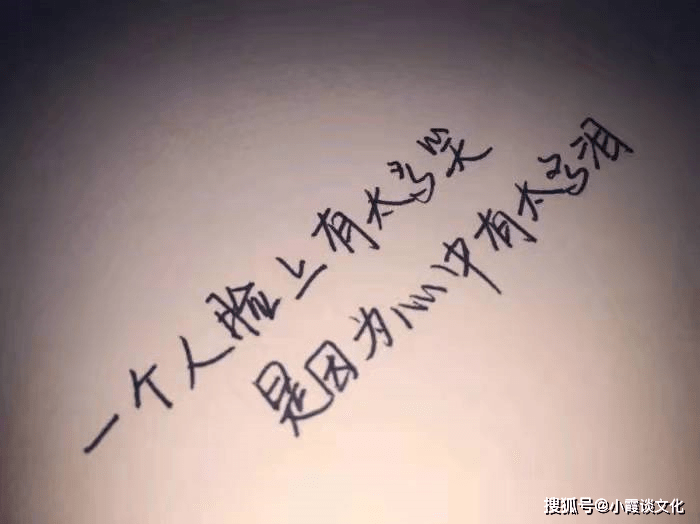 一个人脸上有太多笑
是因为心中有太多泪
搜狐号@小霞谈文化